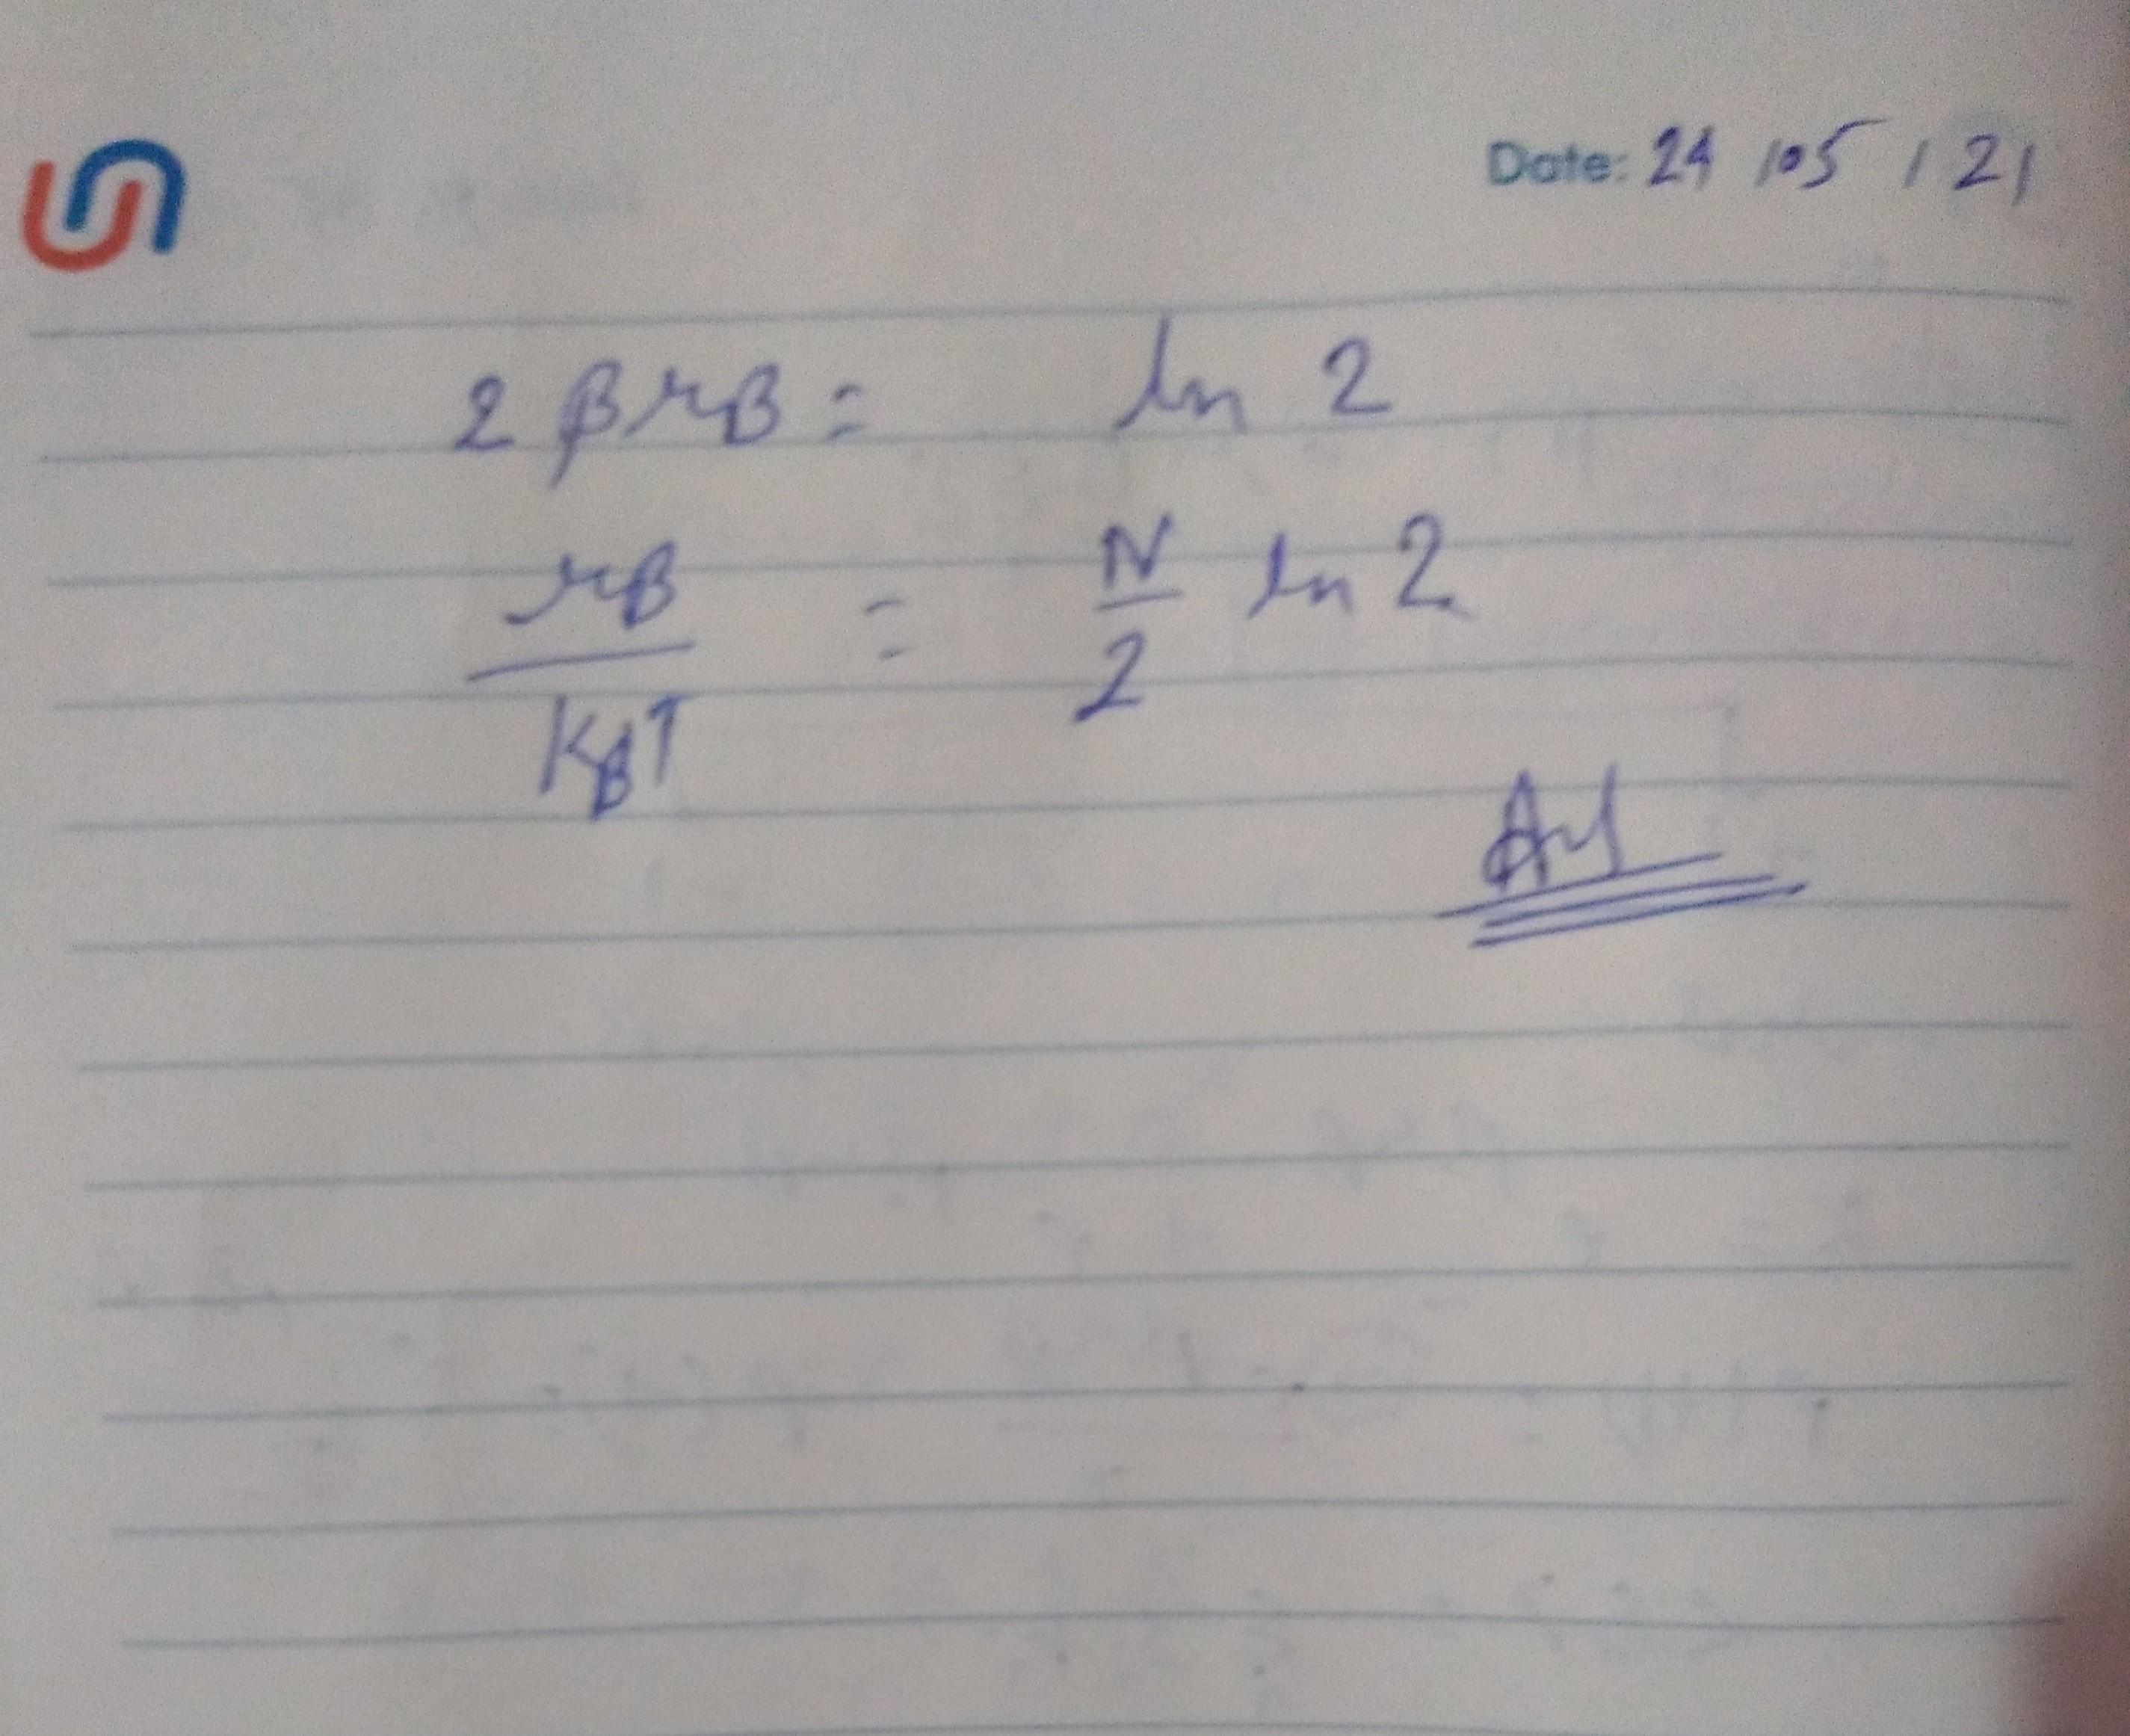 Date: 24/05/21
2βμB = ln 2
μB/K_BT = N/2 ln 2
Ans